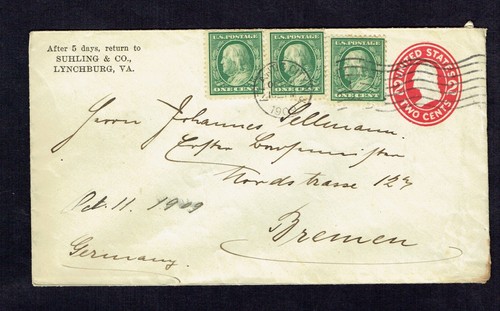 After 5 days, return to
SUHLING & CO.,
LYNCHBURG, VA.
U.S. POSTAGE
ONE CENT
U.S. POSTAGE
ONE CENT
U.S. POSTAGE
ONE CENT
UNITED STATES
TWO CENTS
Herrn Johannes Sellmann
Nordstrasse
Oct. 11. 1909
Bremen
Germany.